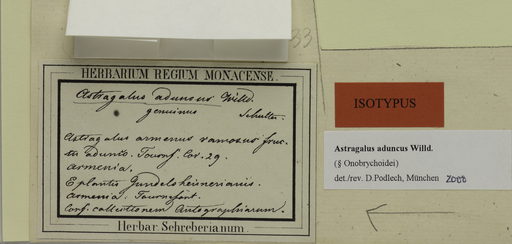 33
HERBARIUM REGIUM MONACENSE.
Astragalus aduncus Willd.
genuinus Schultes.
Astragalus armenus ramosus fruc-
tu adunco. Tournf. Cor. 29.
Armenia.
E plantis Gundelsheimerianis.
Armenia. Tournefort.
Conf. collectionem Autographiarum.
Herbar. Schreberianum.
ISOTYPUS
Astragalus aduncus Willd.
(§ Onobrychoidei)
det./rev. D.Podlech, München